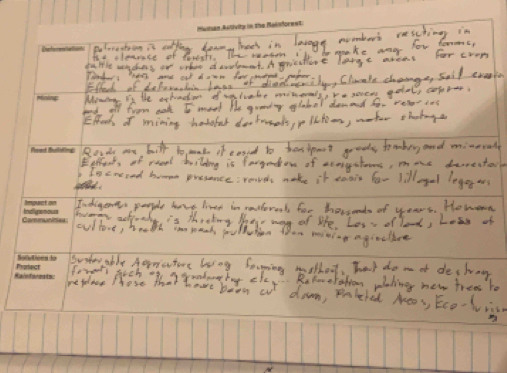 Human Activity in the Rainforest:
Deforestation: Deforestation is cutting down trees in large numbers resulting in
the clearance of forests. The reason is to make way for farms,
cattle ranches, or urban development. Agriculture large areas for crops
Timber, Trees are cut down for paper.
Effects of deforestation loss of biodiversity, Climate change, Soil erosion
Mining: Mining is the extraction of valuable minerals, gold, copper,
and oil from To meet the growing global demand for resources
Effects of mining habitat pollution, water shortage
Road Building: Roads are built to make it to transport goods, timber, and minerals
Effects of road building is of ecosystems, more
Increased human presence: roads make it for illegal
Impact on
Indigenous
Communities: Indigenous people have lived in rainforests for thousands of years. However
human activity is their way of life. Loss of land, Loss of
culture, health impacts, pollution from mining
Solutions to
Protect
Rainforests: Sustainable Agriculture Using farming methods, That do not destroy
forests such as Reforestation, new trees to
replace those that have been cut down, Areas, Eco-